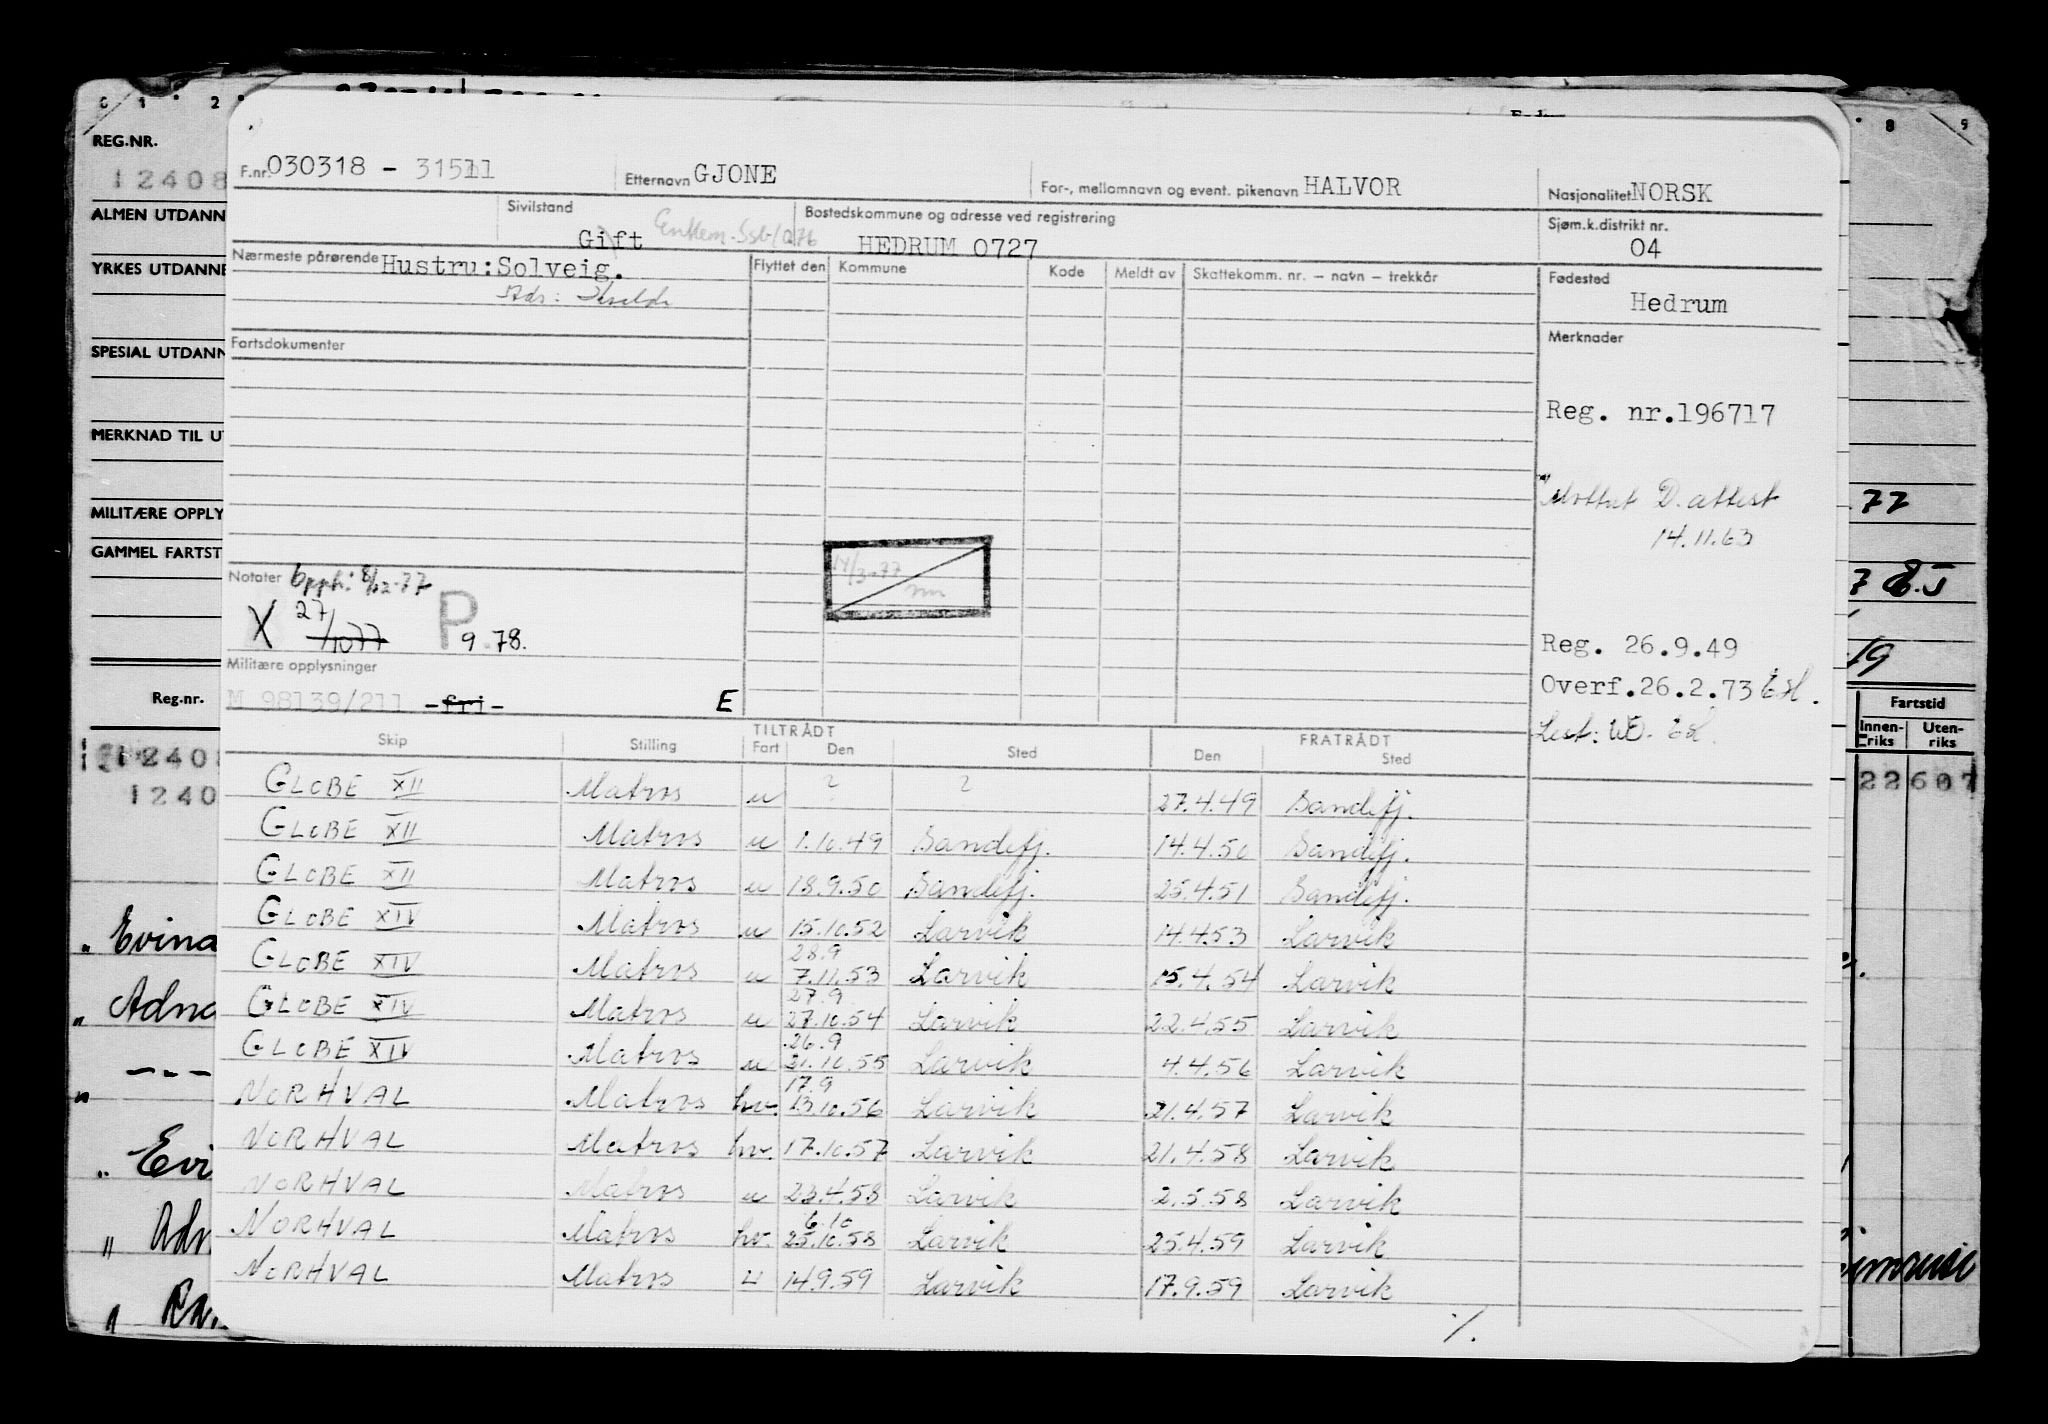 REG.NR.
12408
ALMEN UTDANN
YRKES UTDANNE
SPESIAL UTDANN
MERKNAD TIL U
MILITÆRE OPPLY
GAMMEL FARTST
Reg.nr.
12408
1240
„ Evina
„ Adna
„ -- - --
„ Evi
„ Adn
F.nr. 030318 - 31511 Etternavn GJONE For-, mellomnavn og event. pikenavn HALVOR Nasjonalitet NORSK
Sivilstand Gift Bostedskommune og adresse ved registrering HEDRUM 0727 Sjøm.k.distrikt nr. 04
Nærmeste pårørende Hustru: Solveig. Flyttet den Kommune Kode Meldt av Skattekomm. nr. – navn – trekkår Fødested Hedrum
Adr:
Fartsdokumenter
Merknader
Reg. nr.196717
Mottat D. attest
14.11.63
14/3-77
Notater 8/12-77
X 27/1077 P 9.78.
Reg. 26.9.49
Overf.26.2.73
Militære opplysninger
M 98139/211 -fri- E
TILTRÅDT FRATRÅDT
Skip Stilling Fart Den Sted Den Sted
GLOBE XII Matros u ? ? 27.4.49 Sandefj.
GLOBE XII Matros u 1.10.49 Sandefj. 14.4.50 Sandefj.
GLOBE XII Matros u 18.9.50 Sandefj. 25.4.51 Sandefj.
GLOBE XIV Matros u 15.10.52 Larvik 14.4.53 Larvik
28.9
GLOBE XIV Matros u 7.11.53 Larvik 15.4.54 Larvik
27.9
GLOBE XIV Matros u 27.10.54 Larvik 22.4.55 Larvik
26.9
GLOBE XIV Matros u 21.10.55 Larvik 4.4.56 Larvik
17.9
NORHVAL Matros hv. 13.10.56 Larvik 21.4.57 Larvik
NORHVAL Matros hv. 17.10.57 Larvik 21.4.58 Larvik
NORHVAL Matros u 23.4.58 Larvik 2.5.58 Larvik
6.10
NORHVAL Matros hv. 25.10.58 Larvik 25.4.59 Larvik
NORHVAL Matros u 14.9.59 Larvik 17.9.59 Larvik
%.
77
19
Fartstid
Innen-
riks
Uten-
riks
22607